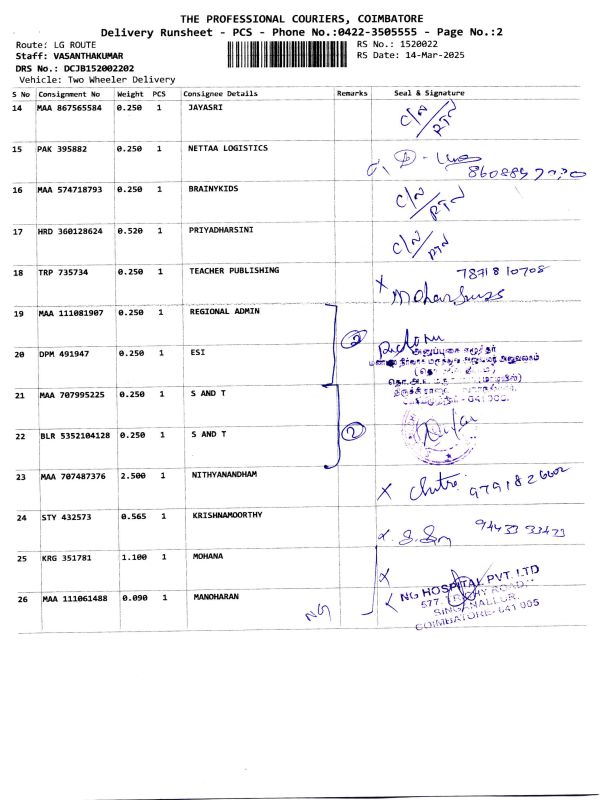 THE PROFESSIONAL COURIERS, COIMBATORE
Delivery Runsheet - PCS - Phone No.:0422-3505555 - Page No.:2
Route: LG ROUTE
RS No.: 1520022
Staff: VASANTHAKUMAR
RS Date: 14-Mar-2025
DRS No.: DCJB152002202
Vehicle: Two Wheeler Delivery
S No Consignment No Weight PCS Consignee Details Remarks Seal & Signature
14 MAA 867565584 0.250 1 JAYASRI C/N/RTN
15 PAK 395882 0.250 1 NETTAA LOGISTICS
16 MAA 574718793 0.250 1 BRAINYKIDS C/N/RTN
17 HRD 360128624 0.520 1 PRIYADHARSINI C/N/RTN
18 TRP 735734 0.250 1 TEACHER PUBLISHING X 7871810708
19 MAA 111081907 0.250 1 REGIONAL ADMIN
2
20 DPM 491947 0.250 1 ESI
21 MAA 707995225 0.250 1 S AND T
2
22 BLR 5352104128 0.250 1 S AND T
23 MAA 707487376 2.500 1 NITHYANANDHAM X Chitra 9791826602
24 STY 432573 0.565 1 KRISHNAMOORTHY
25 KRG 351781 1.100 1 MOHANA X
26 MAA 111061488 0.090 1 MANOHARAN NG
NG HOSPITAL PVT. LTD
577, TRICHY ROAD,
SINGANALLUR,
COIMBATORE- 641 005